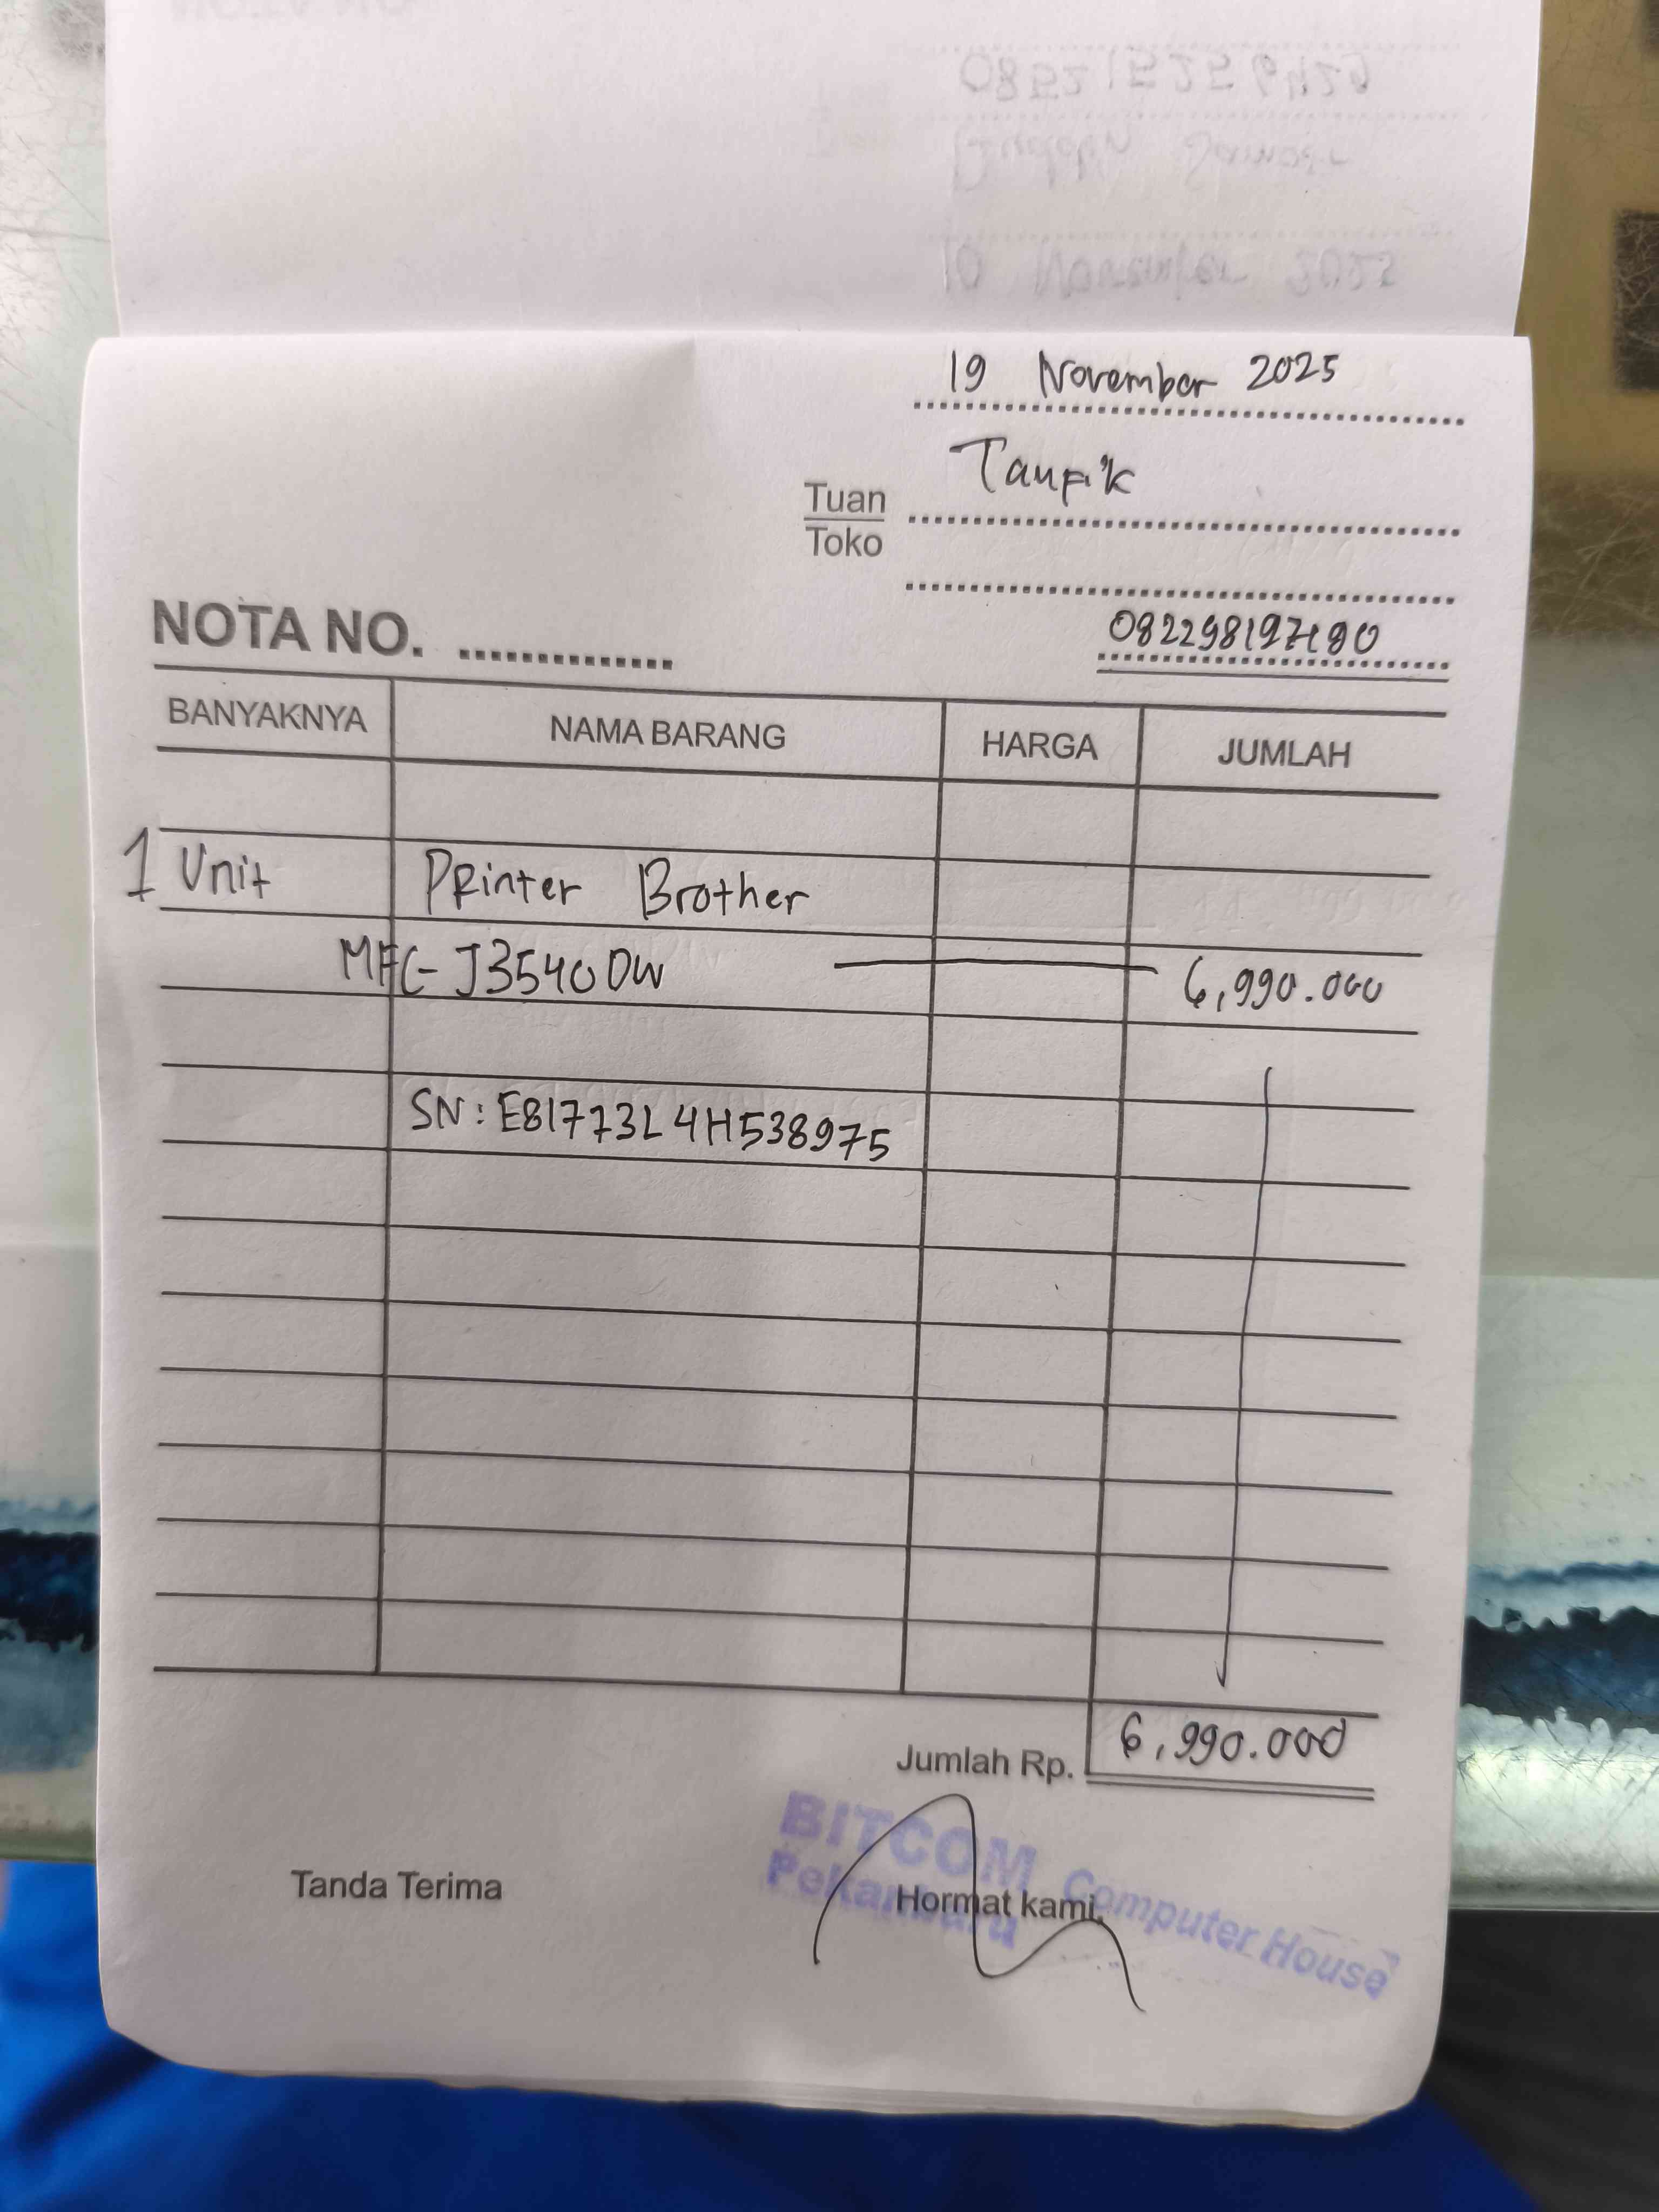 19 November 2025
Taufik
Tuan
Toko
NOTA NO. ..............
082298197190
BANYAKNYA NAMA BARANG HARGA JUMLAH
1 Unit Printer Brother
MFC-J3540DW 6,990.000
SN: E81773L4H538975
Jumlah Rp. 6,990.000
BITCOM Computer House
Pekanbaru
Tanda Terima Hormat kami,